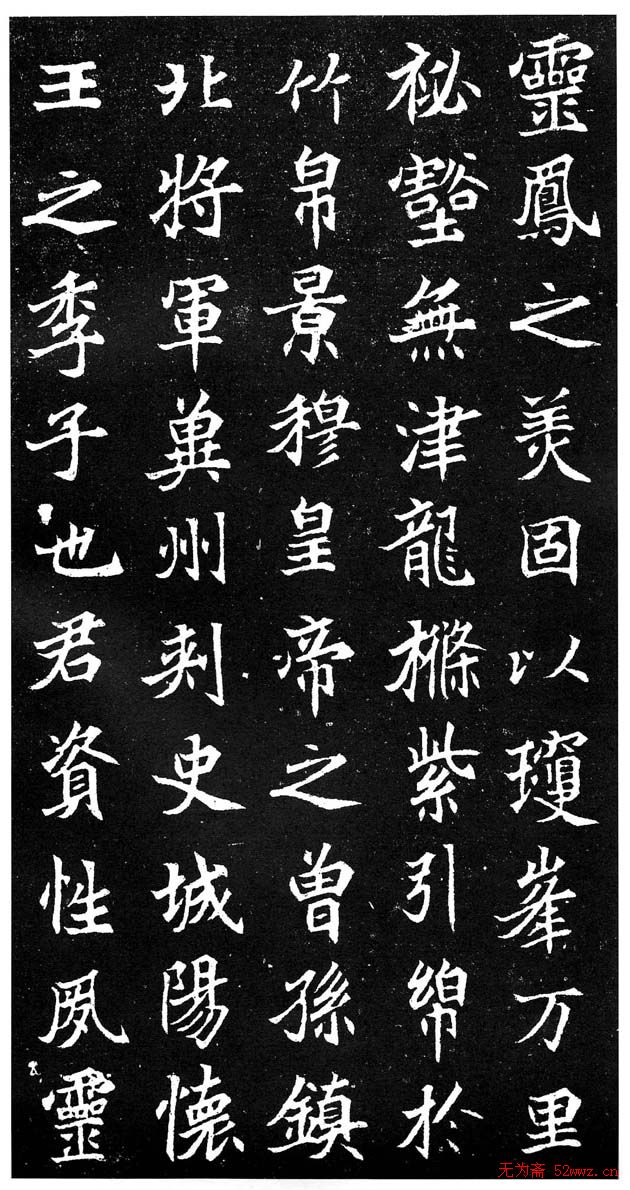 靈鳳之羙固以瓊峯万里
祕壑無津龍檺紫引綿於
竹帛景穆皇帝之曾孫鎮
北將軍兾州刾史城陽懐
王之季子也君資性夙靈
无为斋 52wwz.cn